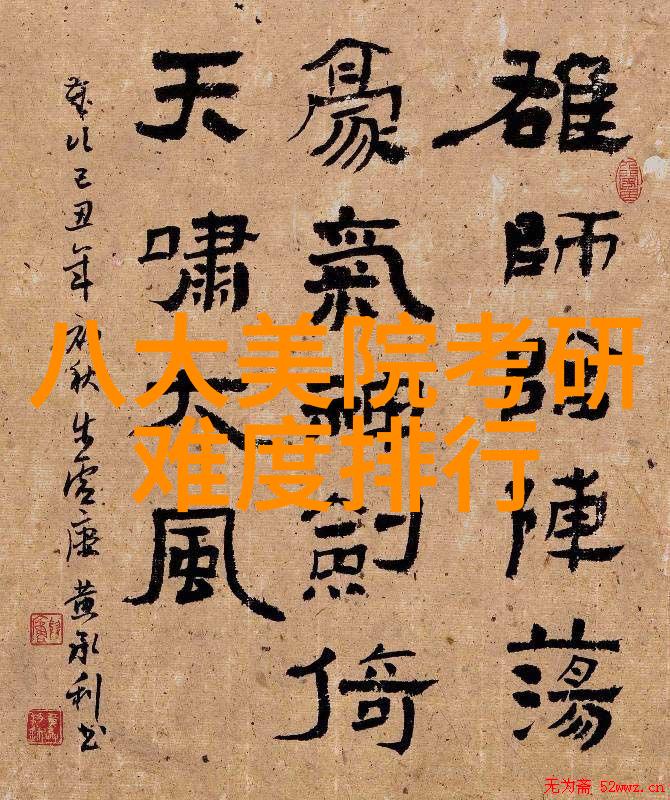 雄師陣蕩
豪氣劍倚
天嘯大風
歲次己丑年初秋黃承利書
八大美院考研
难度排行
无为斋 52wwz.cn